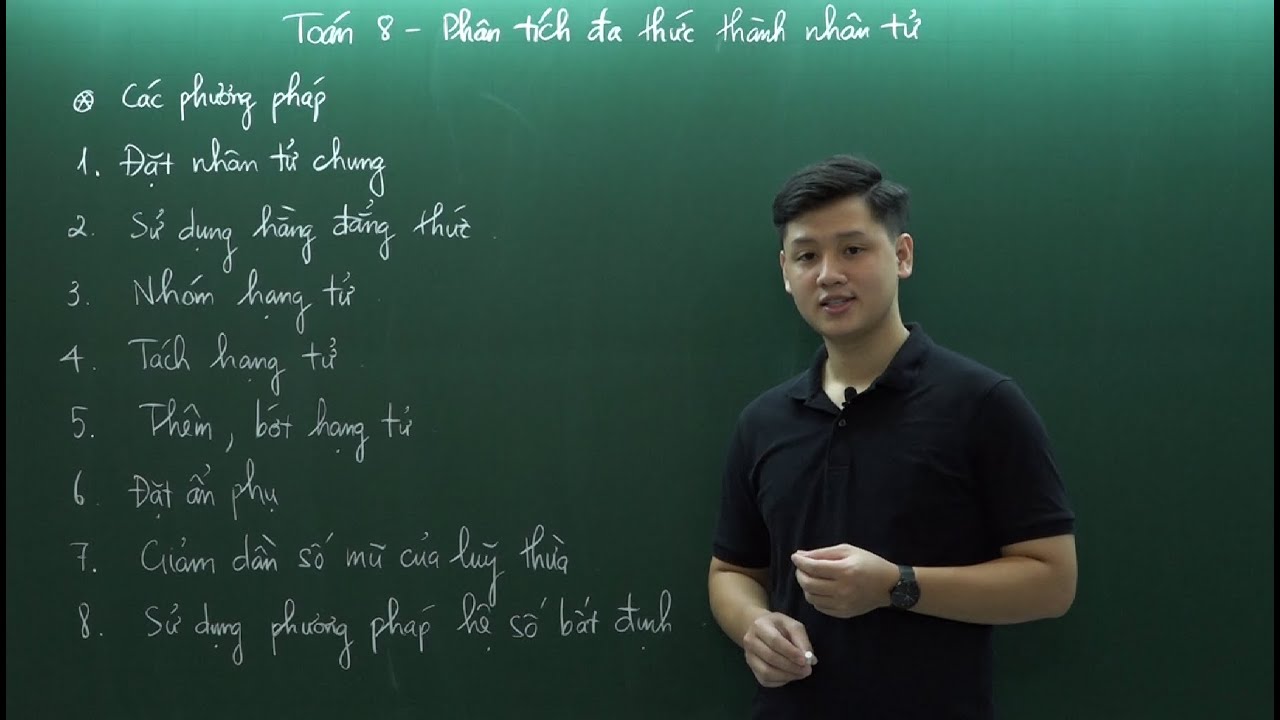 Toán 8 - Phân tích đa thức thành nhân tử
⊛ Các phương pháp
1. Đặt nhân tử chung
2. Sử dụng hằng đẳng thức.
3. Nhóm hạng tử.
4. Tách hạng tử.
5. Thêm, bớt hạng tử.
6. Đặt ẩn phụ
7. Giảm dần số mũ của luỹ thừa
8. Sử dụng phương pháp hệ số bất định.